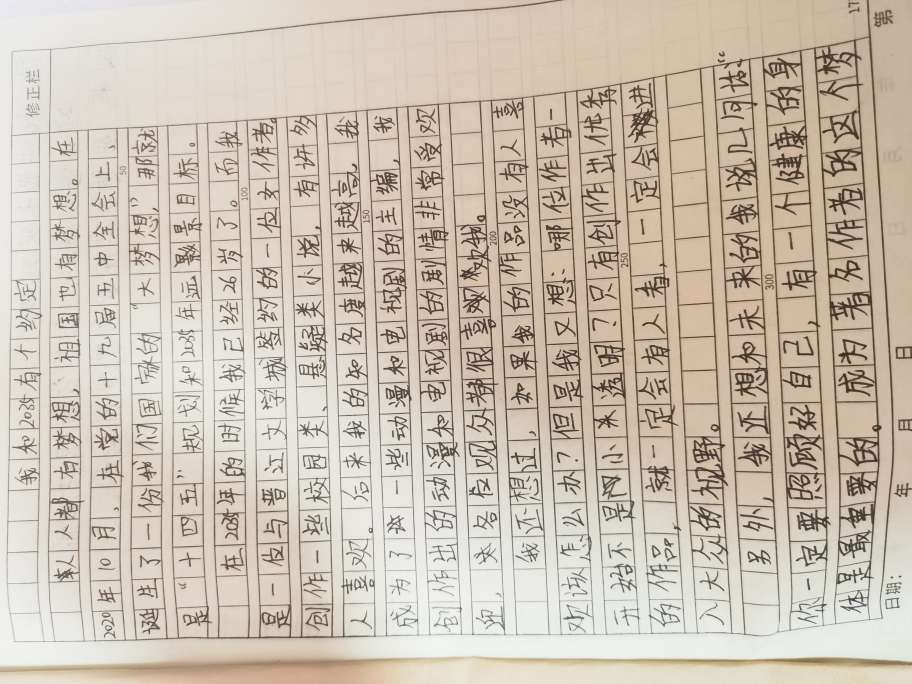 修正栏
我和2035有个约定
人人都有梦想，祖国也有梦想。在
2020年10月，在党的十九届五中全会上，
50
诞生了一份我们国家的“大梦想，”那就
是“十四五”规划和2035年远景目标。
在2035年的时候我已经26岁了。而我
100
是一位与晋江文学城签约的一位女作者。
创作一些校园类、悬疑类小说，有许多
人喜欢。后来我的知名度越来越高，我
150
成为了一些动漫和电视剧的主编，我
创作出的动漫和电视剧的剧情非常受欢
迎，各位观众都很喜欢我。
200
我还想过，如果我的作品没有人喜
欢该怎么办？但是我又想：哪位作者一
开始不是小透明？只有创作出优秀
250
的作品，就一定会有人看，一定会进
入大众的视野。
另外，我还想和未来的我说几句话：“
300
你一定要照顾好自己，有一个健康的身
体是最重要的。成为著名作者的这个梦
日期：
年
月
日
第
17